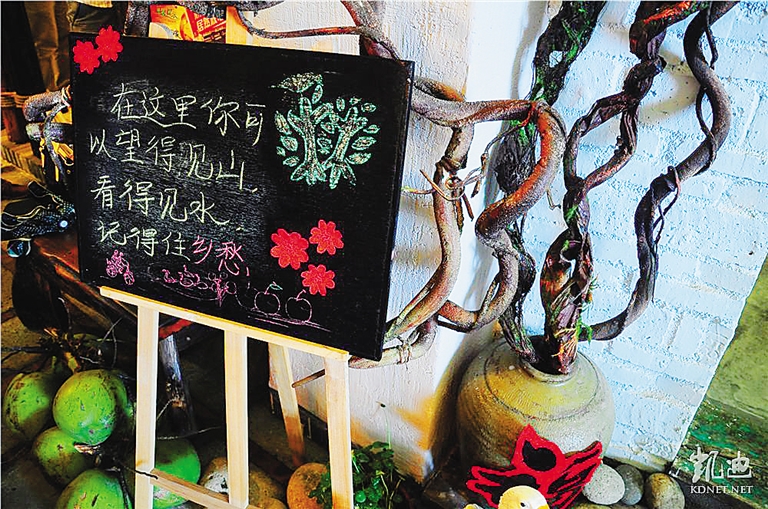 在这里你可
以望得见山、
看得见水、
记得住乡愁
凯迪
KDNET.NET